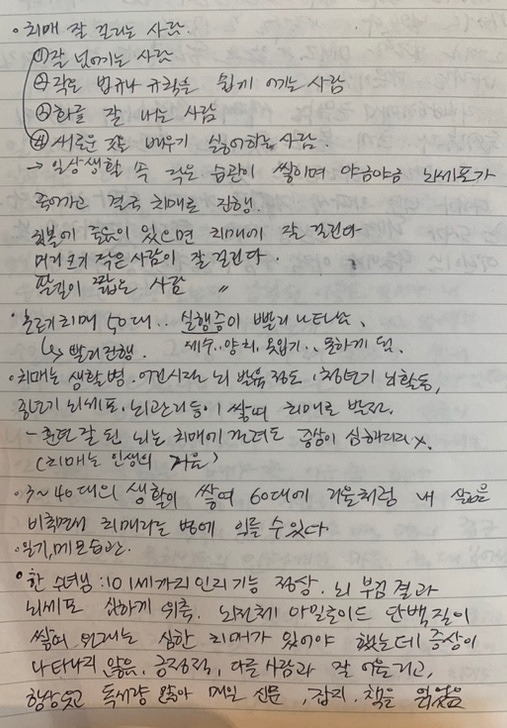 • 치매 잘 걸리는 사람.
① 잘 넘어지는 사람
② 작은 법규나 규칙을 쉽게 어기는 사람
③ 화를 잘 내는 사람
④ 새로운 것을 배우기 싫어하는 사람.
→ 일상생활 속 작은 습관이 쌓이며 야금야금 뇌세포가
죽어가고 결국 치매로 진행.
귓볼에 주름이 있으면 치매에 잘 걸린다
머리 크기 작은 사람이 잘 걸린다.
팔길이 짧은 사람 〃
• 초로기치매 50대.. 실행증이 빨리 나타남.
↳ 빨리 진행. 세수, 양치, 옷입기.. 못하게 됨.
• 치매는 생활병. 어린시절 뇌 발육정도, 청년기 뇌활동,
중년기 뇌세포. 뇌관리 등이 쌓여 치매로 발전.
- 훈련 잘 된 뇌는 치매에 걸려도 증상이 심해지지 X.
(치매는 인생의 거울)
• 3~40대의 생활이 쌓여 60대에 거울처럼 내 삶을
비추면서 치매라는 병에 이를 수 있다
• 일기, 메모습관.
• 한 수녀님 : 101세까지 인지기능 정상. 뇌 부검 결과
뇌세포 심하게 위축. 뇌전체 아밀로이드 단백질이
쌓여 원래는 심한 치매가 있어야 했는데 증상이
나타나지 않음. 긍정적, 다른 사람과 잘 어울리고,
항상 웃고 독서량 많아 매일 신문, 잡지, 책을 읽었음